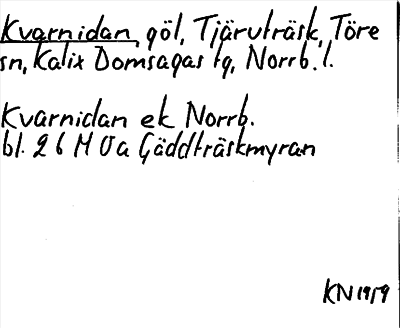 Kvarnidan, göl, Tjäruträsk, Töre
sn, Kalix Domsagas tg, Norrb. l.
Kvarnidan ek Norrb.
bl. 26 M Va Gäddträskmyran
KN 1959